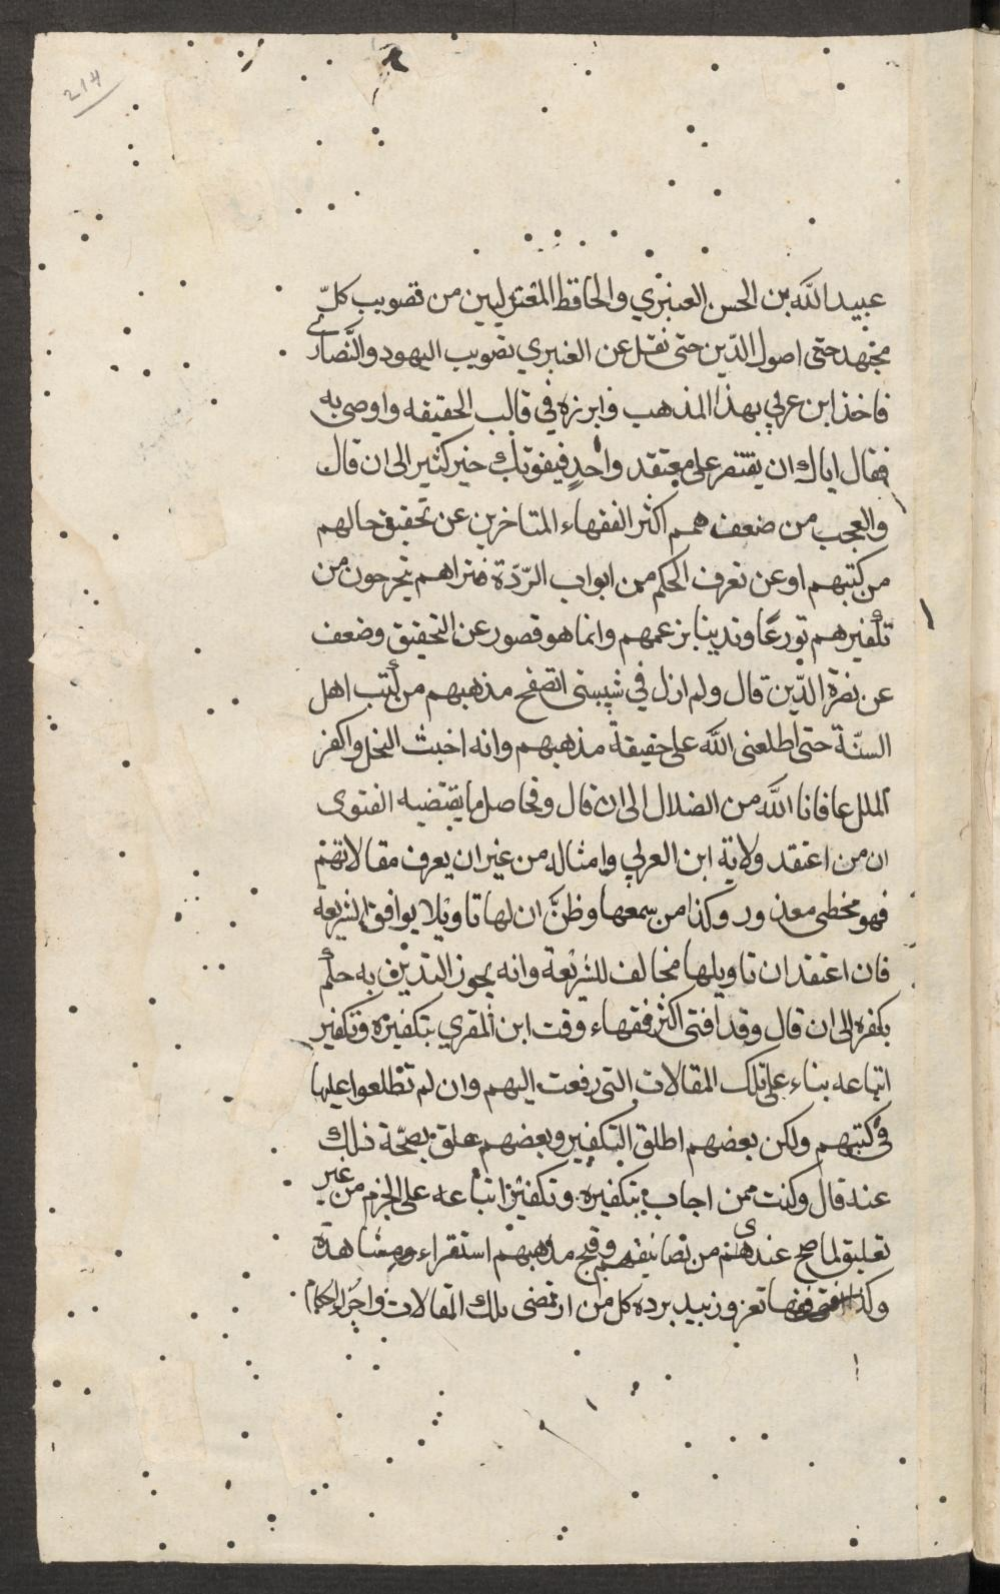 214
عبيد الله بن الحسن العنبري والحافظ المعتزليين من تصويب كلّ
مجتهد حتى اصول الدّين حتى نقل عن العنبري تصويب اليهود والنّصارى
فاخذ ابن عربي بهذا المذهب وابرزه في قالب الحقيقه واوصى به
فقال اياك ان يقتصر على معتقد واحدٍ فيفوتك خير كثير الى ان قال
والعجب من ضعف همم اكثر الفقهاء المتاخرين عن تحقيق حالهم
من كتبهم او عن تعرف الحكم من ابواب الرّدّة فتراهم يتحرجون من
تكفيرهم تورعًا وتدينا بزعمهم وانما هو قصور عن التحقيق وضعف
عن نصرة الدّين قال ولم ازل في شيبتى اتصفح مذهبهم من كتب اهل
السنّة حتى اطلعنى الله على حقيقة مذهبهم وانه اخبث النحل واكفر
الملل عافانا الله من الضلال الى ان قال وفحاصل ما يقتضيه الفتوى
ان من اعتقد ولاية ابن العربي وامثاله من غير ان يعرف مقالاتهم
فهو مخطى معذور وكذا من سمعها وظنَّ ان لها تاويلا يوافق الشريعة
فان اعتقد ان تاويلها مخالف للشريعة وانه يجوز التدين به حكم
بكفره الى ان قال وقد افتى اكثر فقهاء وقت ابن المقري بتكفيره وتكفير
اتباعه بناء على تلك المقالات التى رفعت اليهم وان لم تطلعوا عليها
في كتبهم ولكن بعضهم اطلق التكفير وبعضهم علق بصحّة ذلك
عند قال وكنت ممن اجاب بتكفيره وتكفير اتباعه على الجزم من غير
تعليق لما صح عندى من تصانيفهم وقبح مذهبهم استقراء ومشاهدة
وكذا افتى فقها تعز وزبيد برده كل من ارتضى تلك المقالات واجراء احكام